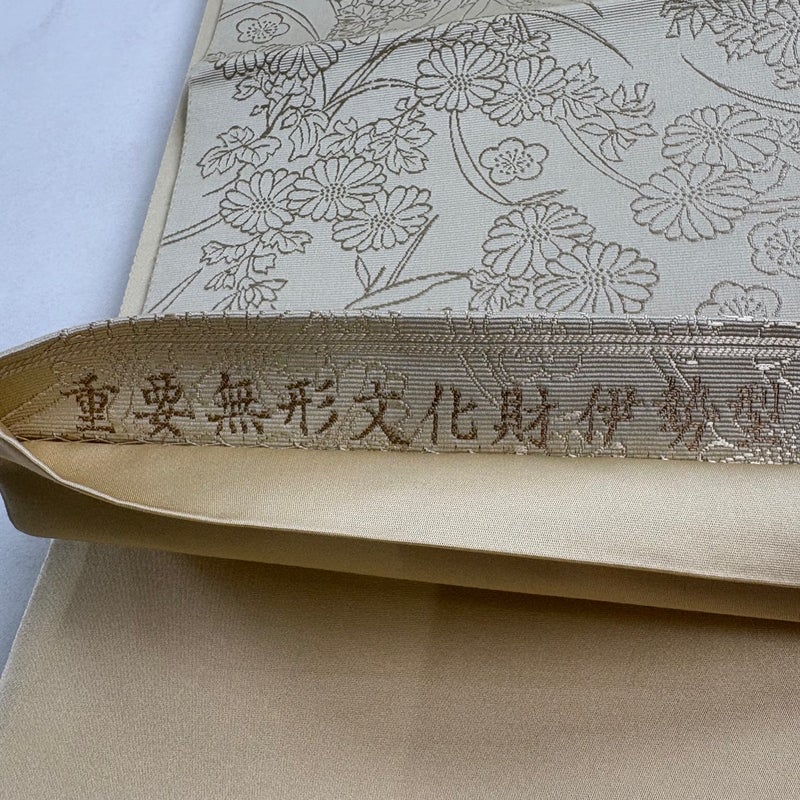 重要無形文化財伊勢型